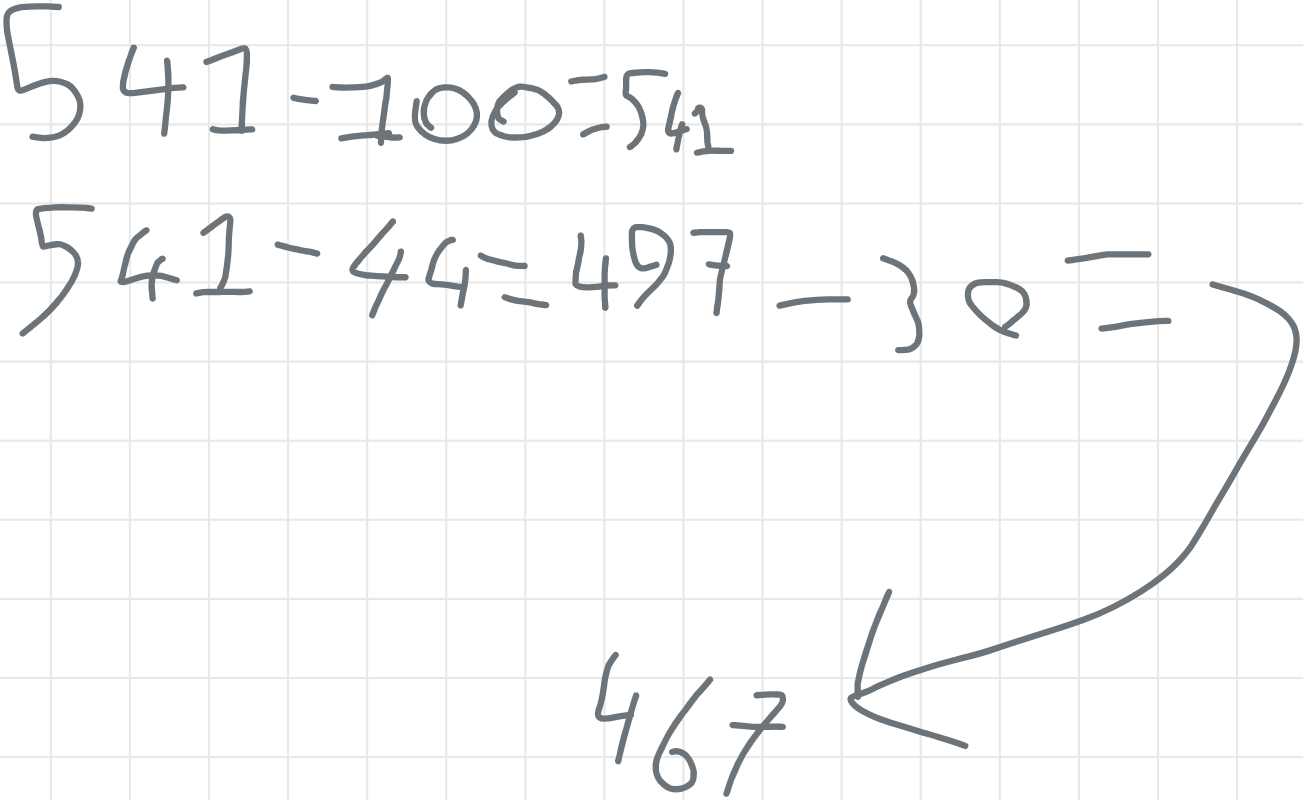 541-100=541
541-44=497-30=
467